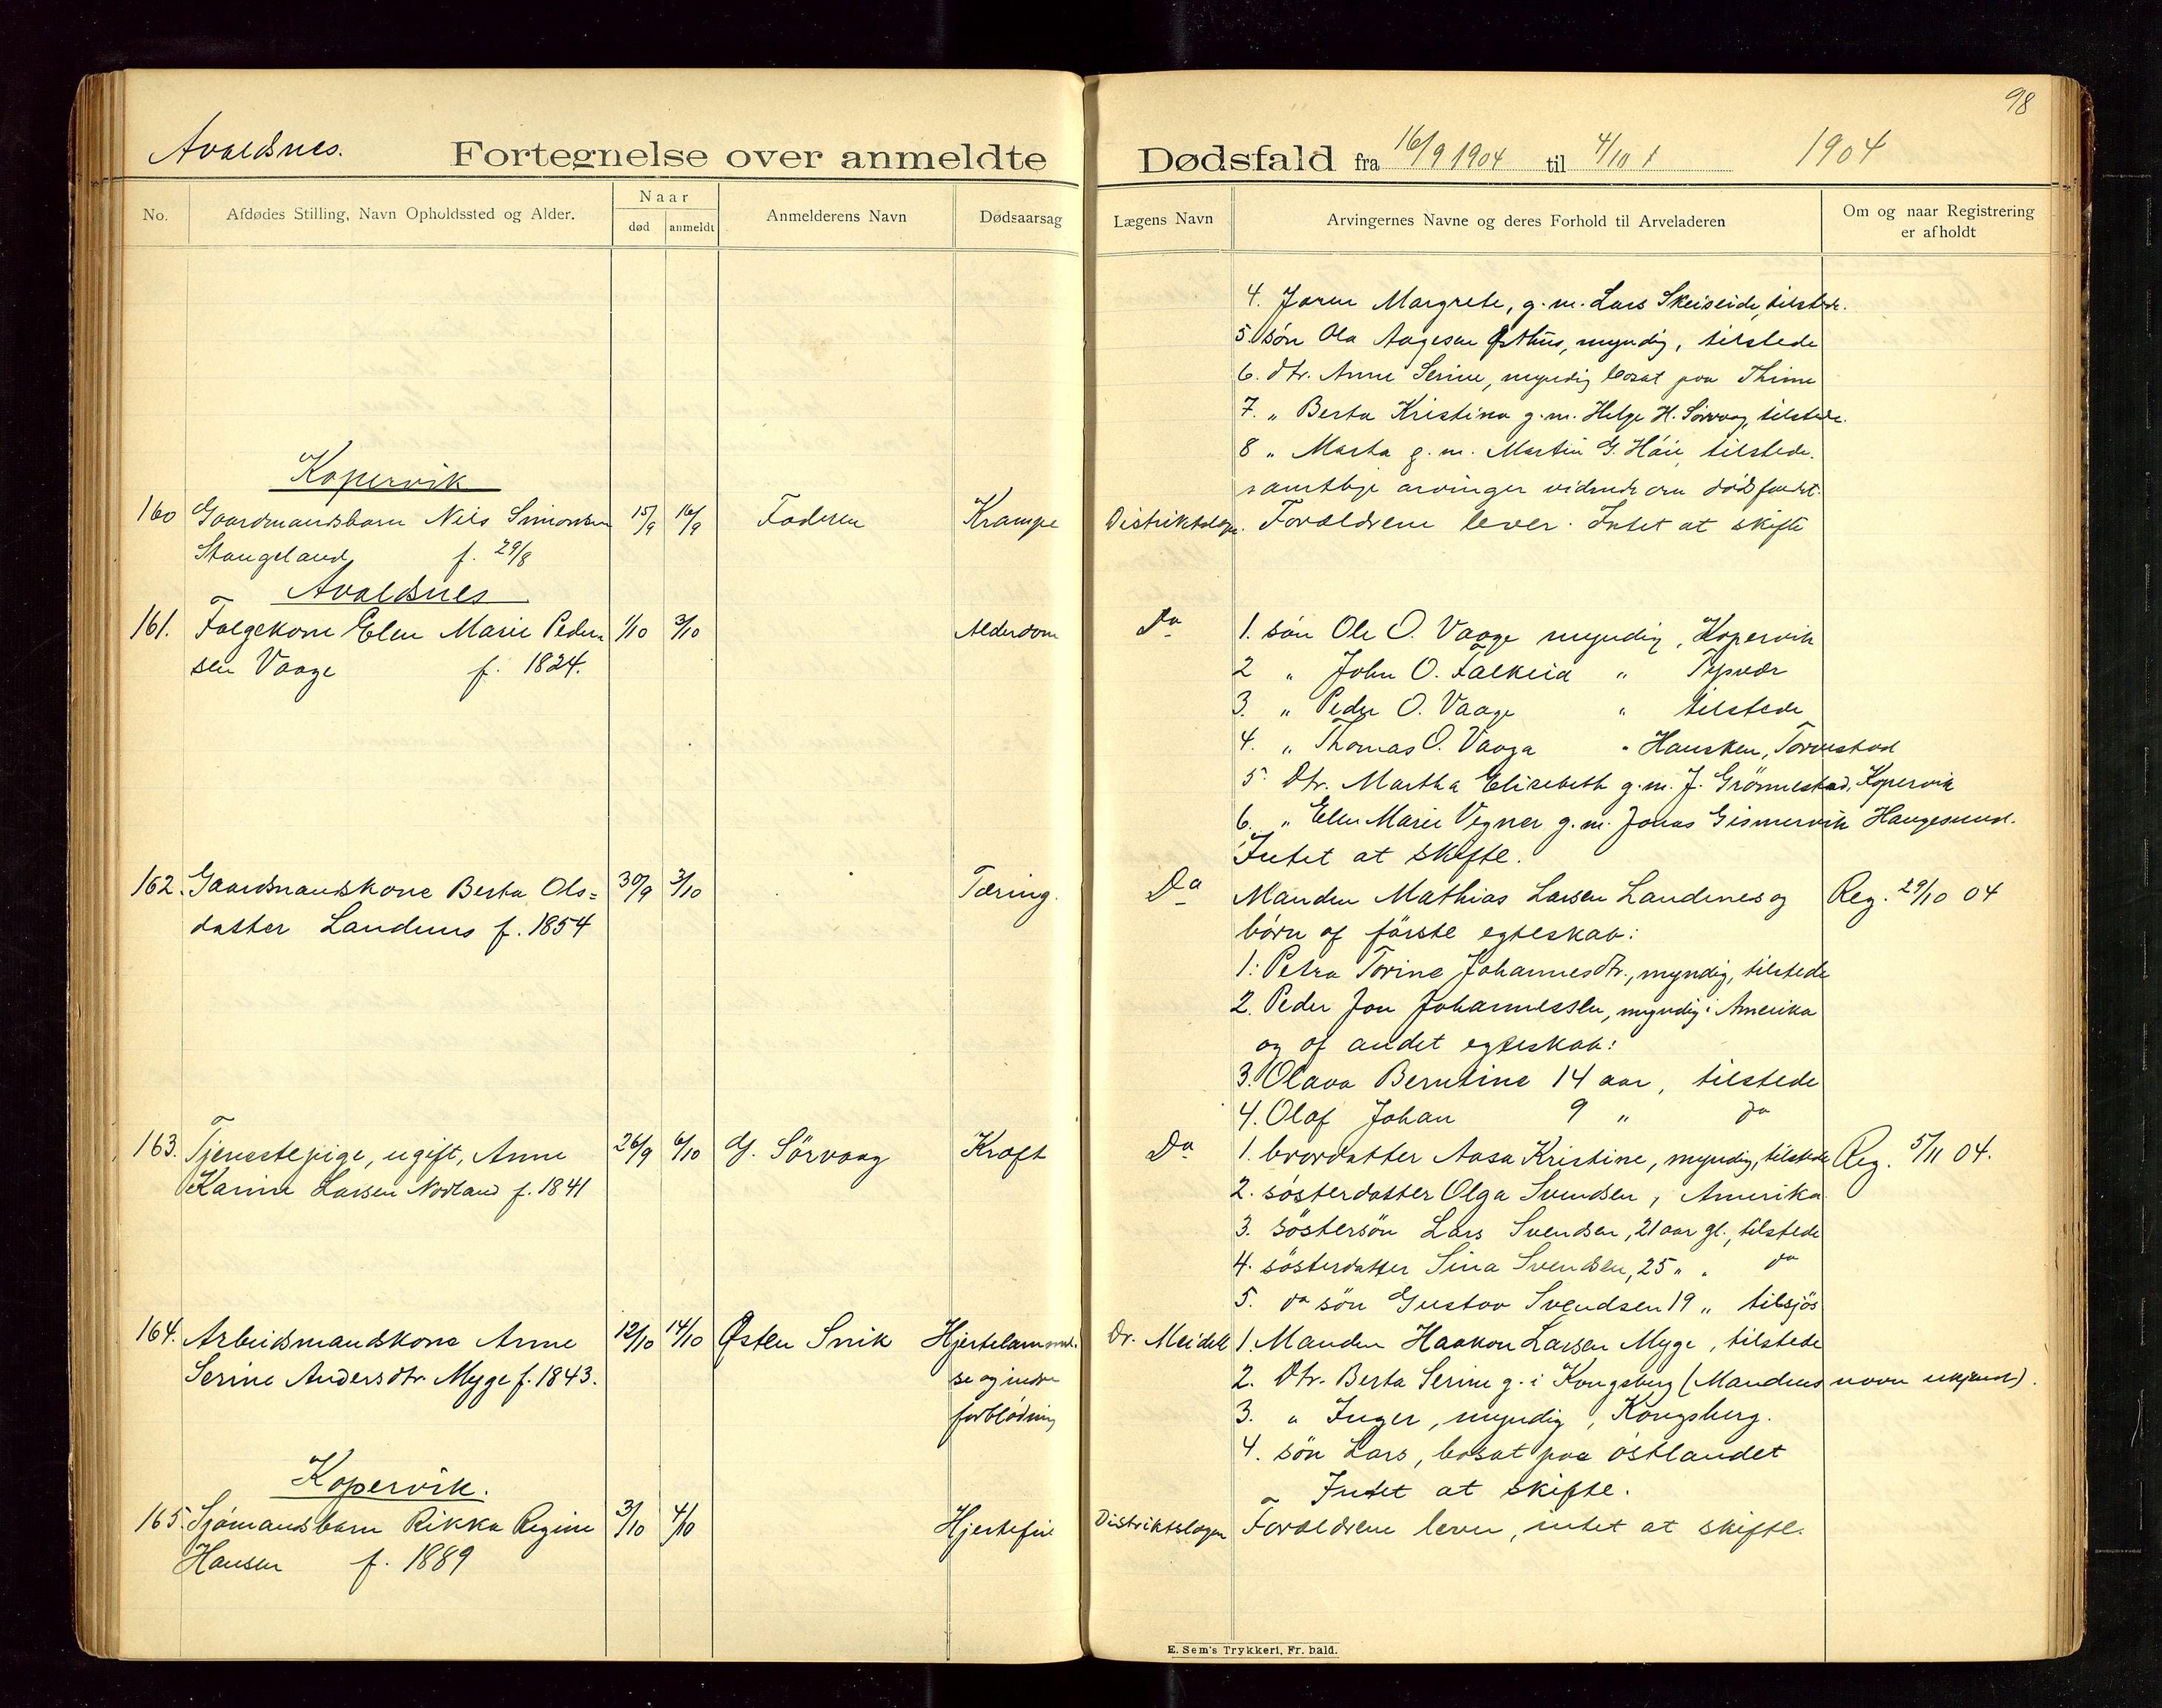 98
Avaldsnes.
Fortegnelse over anmeldte Dødsfald fra 16/9 1904 til 4/10 1904
No.
Afdødes Stilling, Navn Opholdssted og Alder.
Naar
død
anmeldt
Anmelderens Navn
Dødsaarsag
Lægens Navn
Arvingernes Navne og deres Forhold til Arveladeren
Om og naar Registrering
er afholdt
4. Joren Margrete, g.m. Lars Skeiseide, tilstede.
5. søn Ola Aagesen Østhus, myndig, tilstede
6. dtr. Anne Serine, myndig bosat paa Thime
7. " Berta Kristina g.m. Helge H. Sørvaag, tilstede.
8 " Marta g.m. Martin G. Høie, tilstede.
samtlige arvinger vidende om dødsfaldet.
Kopervik
160 Gaardmandsbarn Nils Simonsen 15/9 16/9 Faderen Krampe Distriktslægen. Forældrene lever. Intet at skifte
Stangeland f. 29/8
Avaldsnes
161. Følgekone Elen Marie Peder- 1/10 3/10 Alderdom Do 1. søn Ole O. Vaage myndig, Kopervik
sen Vaage f. 1824. 2 " John O. Falkeid " Tysvær
3. " Peder O. Vaage " tilstede
4. " Thomas O. Vaage " Hausken, Torvestad
5. Dtr. Martha Elisebeth g.m. J. Grønnestad, Kopervik
6. " Ellen Marie Vegner g.m. Jonas Gismervik Haugesund.
Intet at skifte.
162. Gaardmandskone Berta Ols= 30/9 3/10 Tæring. Do Manden Mathias Larsen Landenes og Reg. 29/10 04
datter Landenes f. 1854 børn af første egteskab:
1. Petra Torine Johannesdtr., myndig, tilstede
2. Peder Jon Johannessen, myndig i Amerika
og af andet egteskab:
3. Olava Berntine 14 aar, tilstede
4. Olaf Johan 9 " do
163. Tjenestepige, ugift, Anne 26/9 6/10 G. Sørvaag Kræft Do 1. brordatter Aasa Kristine, myndig, tilstede Reg. 5/11 04.
Karine Larsen Nodland f. 1841 2. søsterdatter Olga Svendsen, Amerika
3. søstersøn Lars Svendsen, 21 aar gl., tilstede
4. søsterdatter Sina Svendsen, 25 " " do
5. do søn Gustav Svendsen 19 " tilsjøs
164. Arbeidsmandskone Anne 12/10 14/10 Østen Snik Hjertelammel- Dr. Meidell 1. Manden Haakon Larsen Myge, tilstede
Serine Andersdtr Myge f. 1843. se og indre 2. Dtr. Berta Serine g. i Kongsberg (Mandens navn ukjendt).
forblødning 3. " Inger, myndig, Kongsberg.
4. søn Lars, bosat paa østlandet
Intet at skifte.
Kopervik.
165. Sjømandsbarn Rikka Regine 3/10 4/10 Hjertefeil Distriktslægen Forældrene lever, intet at skifte.
Hansen f. 1889
E. Sem's Trykkeri, Fr.hald.